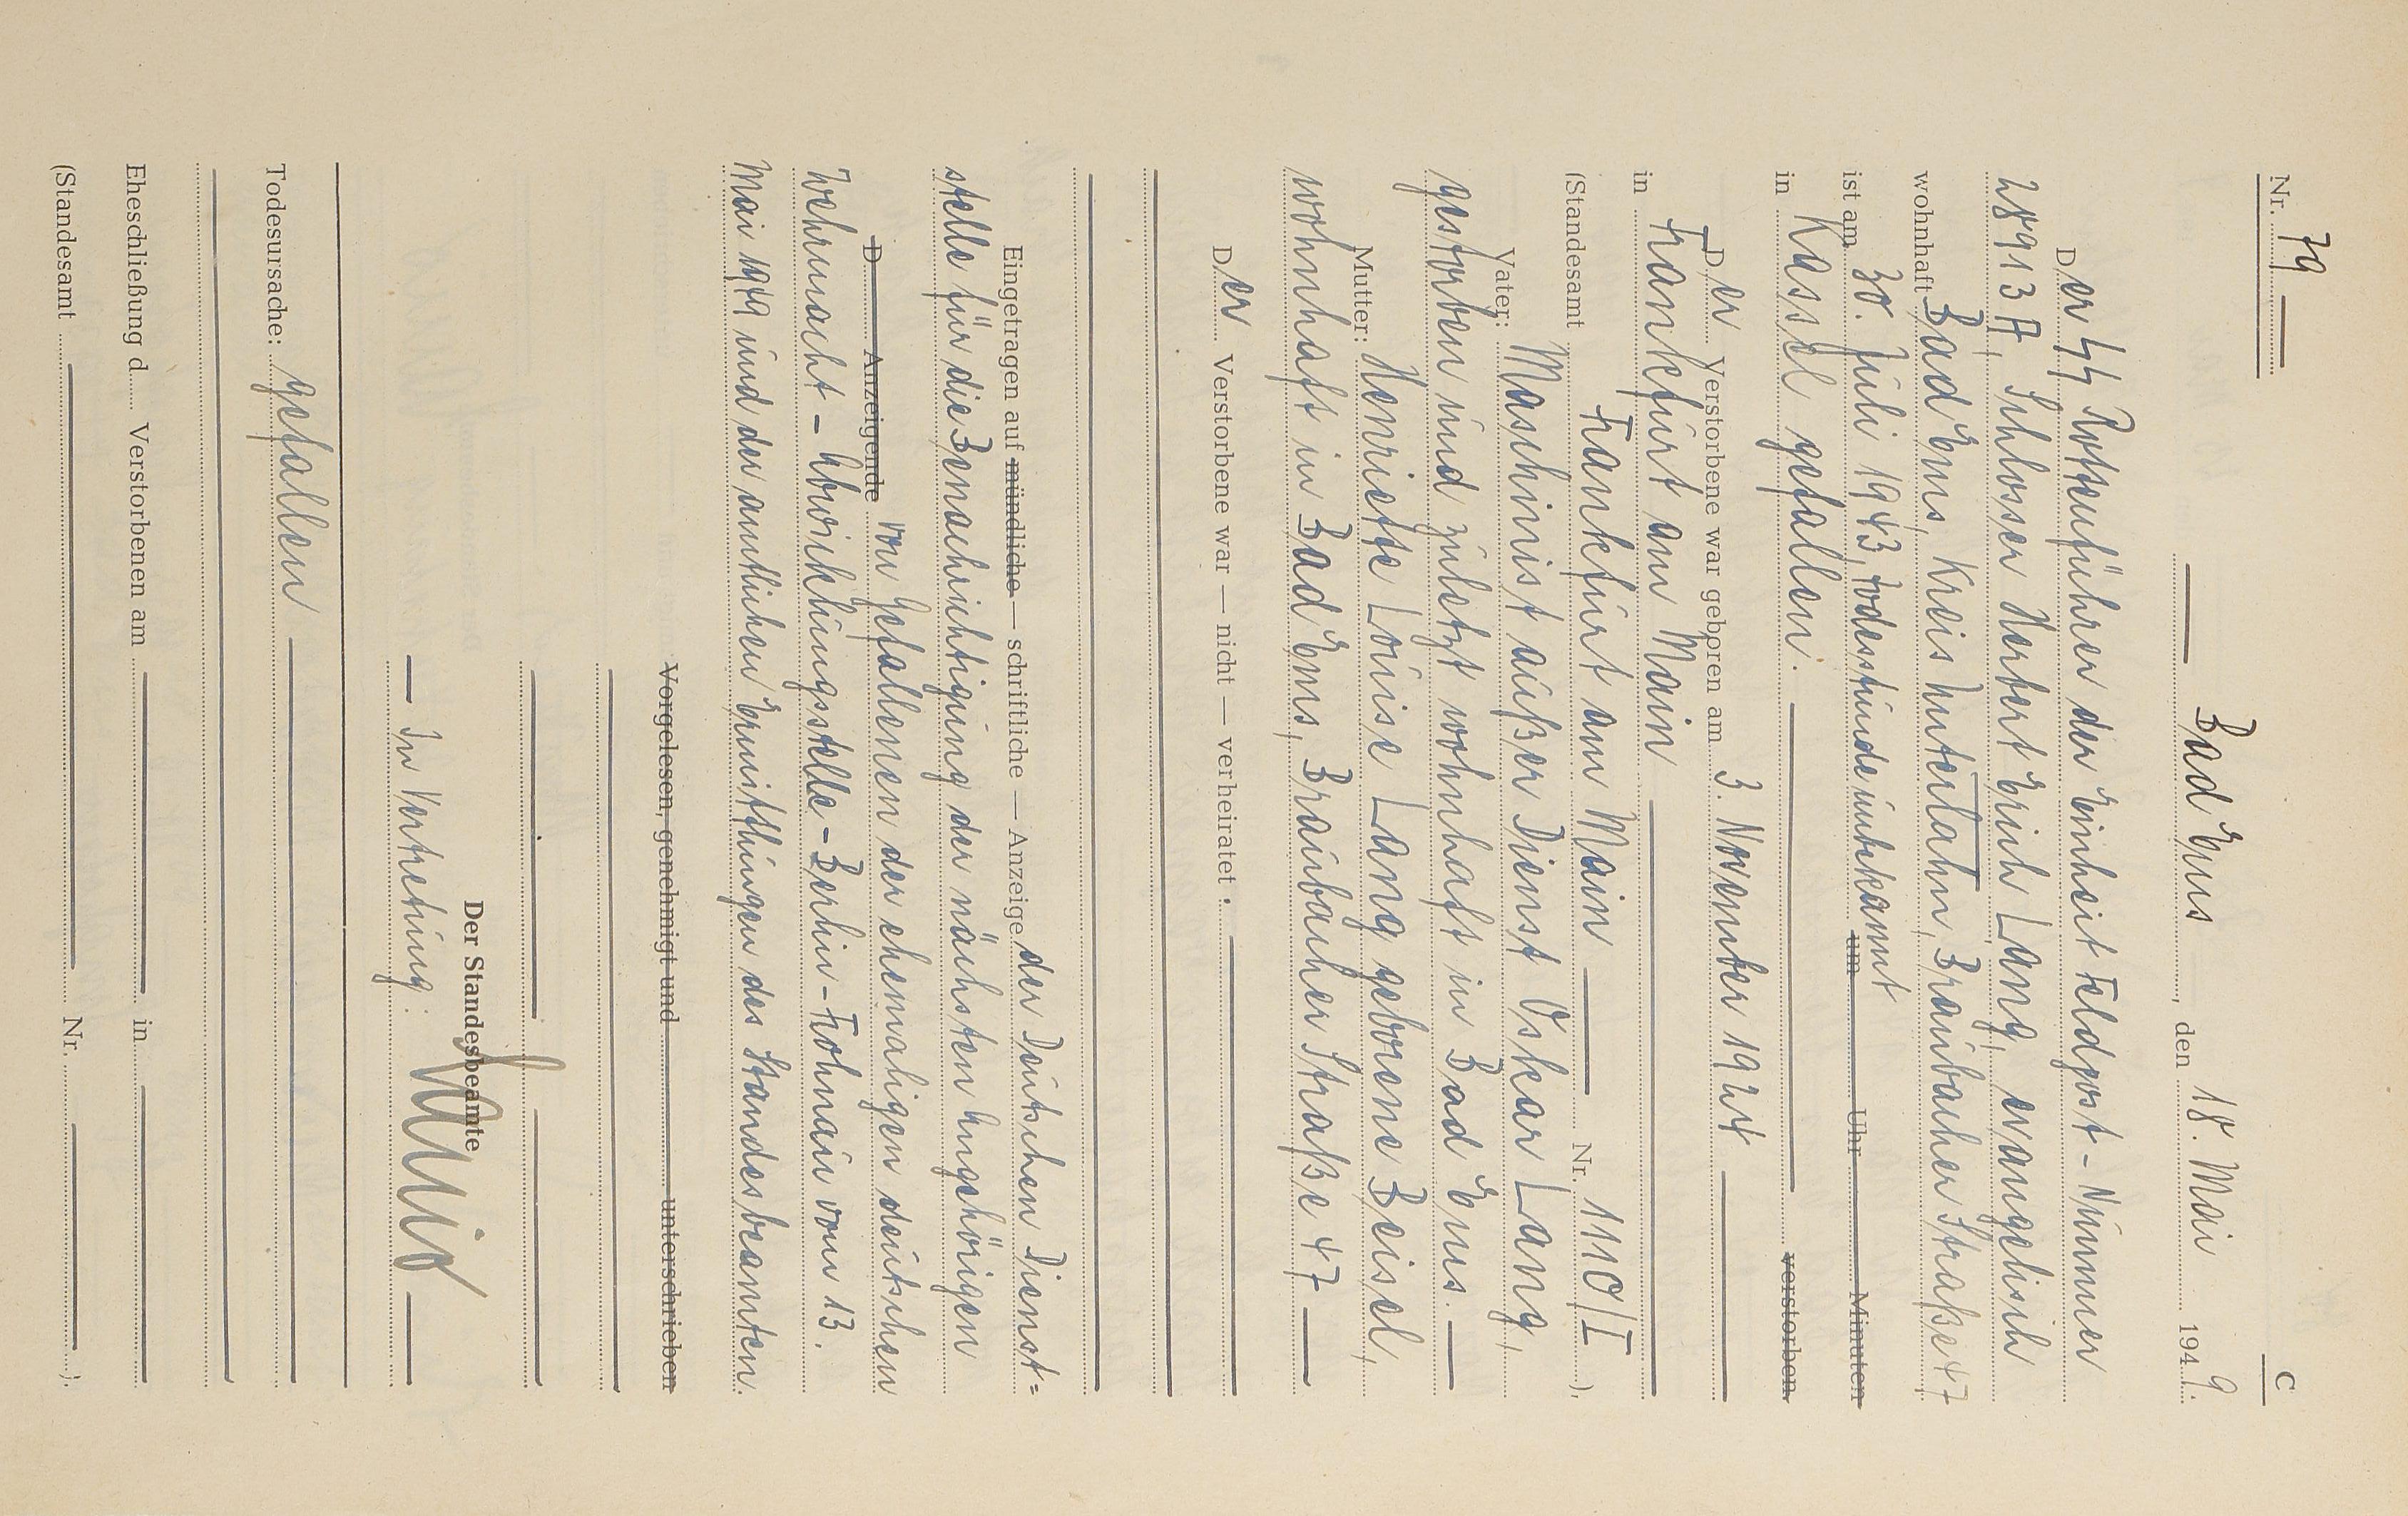 Nr. 79
C
Bad Ems, den 18. Mai 1949.
Der SS Rottenführer der Einheit Feldpost-Nummer
28913 A, Schlosser Herbert Erich Lang, evangelisch
wohnhaft Bad Ems, Kreis Unterlahn, Braubacher Straße 47
ist am 30. Juli 1943, Todesstunde unbekannt um Uhr Minuten
in Kassel gefallen. verstorben.
Der Verstorbene war geboren am 3. November 1924
in Frankfurt am Main
(Standesamt Frankfurt am Main Nr. 1110/I),
Vater: Maschinist außer Dienst Oskar Lang,
gestorben und zuletzt wohnhaft in Bad Ems.
Mutter: Henriette Louise Lang geborene Beisel,
wohnhaft in Bad Ems, Braubacher Straße 47
Der Verstorbene war — nicht — verheiratet.
Eingetragen auf mündliche — schriftliche — Anzeige der Deutschen Dienst=
stelle für die Benachrichtigung der nächsten Angehörigen
D Anzeigende von Gefallenen der ehemaligen deutschen
Wehrmacht - Abwicklungsstelle - Berlin-Frohnau vom 13.
Mai 1949 und der amtlichen Ermittlungen des Standesbeamten.
Vorgelesen, genehmigt und unterschrieben
Der Standesbeamte
In Vertretung:
Todesursache: gefallen
Eheschließung d Verstorbenen am in
(Standesamt Nr. ).